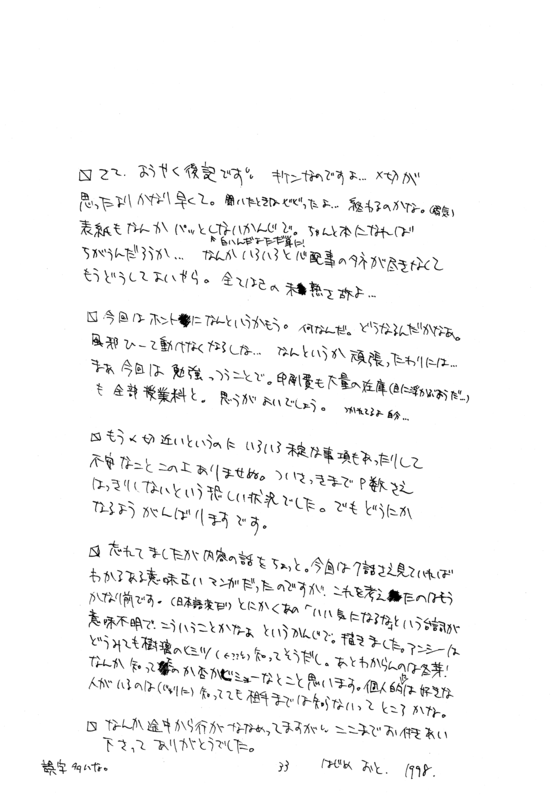 さて、ようやく後記です。キケンなのですよ… 〆切が
思ったよりかなり早くて。聞いたときはビビったよ… 終わるのかな。(弱気)
表紙もなんかパッとしないかんじで。ちゃんと本になれば
白いんだよただ単に!
ちがうんだろうか… なんかいろいろと心配事のタネが尽きなくて
もうどうしてよいやら。全ては己の未熟さ故よ…
今回はホントになんというかもう。何なんだ。どうなるんだかなあ。
風邪ひーて動けなくなるしな… なんというか頑張ったわりには…
まあ今回は勉強っつうことで。印刷費も大量の在庫(目に浮かぶようだ…)
も全部授業料と。思うがよいでしょう。つかれてるよ自分…
もう〆切近いというのにいろいろ未定な事項もあったりして
不安なことこの上ありませぬ。ついさっきまでP数さえ
はっきりしないという恐しい状況でした。でもどうにか
なるようがんばりますです。
忘れてましたが内容の話をちょっと。今回は7話さえ見ていれば
わかるある意味古いマンガだったのですが、これを考えたのはもう
かなり前です。(日本語変だ!)とにかくあの「いい気になるな」という台詞が
意味不明で、こういうことかなぁというかんじで。描きました。アンシーは
どうみても樹璃のヒミツ()知ってそうだし。あとわからんのは冬芽!
なんか知ってるのか否かビミョーなとこと思います。個人的には好きな
人がいるのは()知ってても相手までは知らないってところかな。
なんか途中から行がななめってますがここまでお付きあい
下さってありがとうでした。
誤字多いな。
33
はじめ おと. 1998.